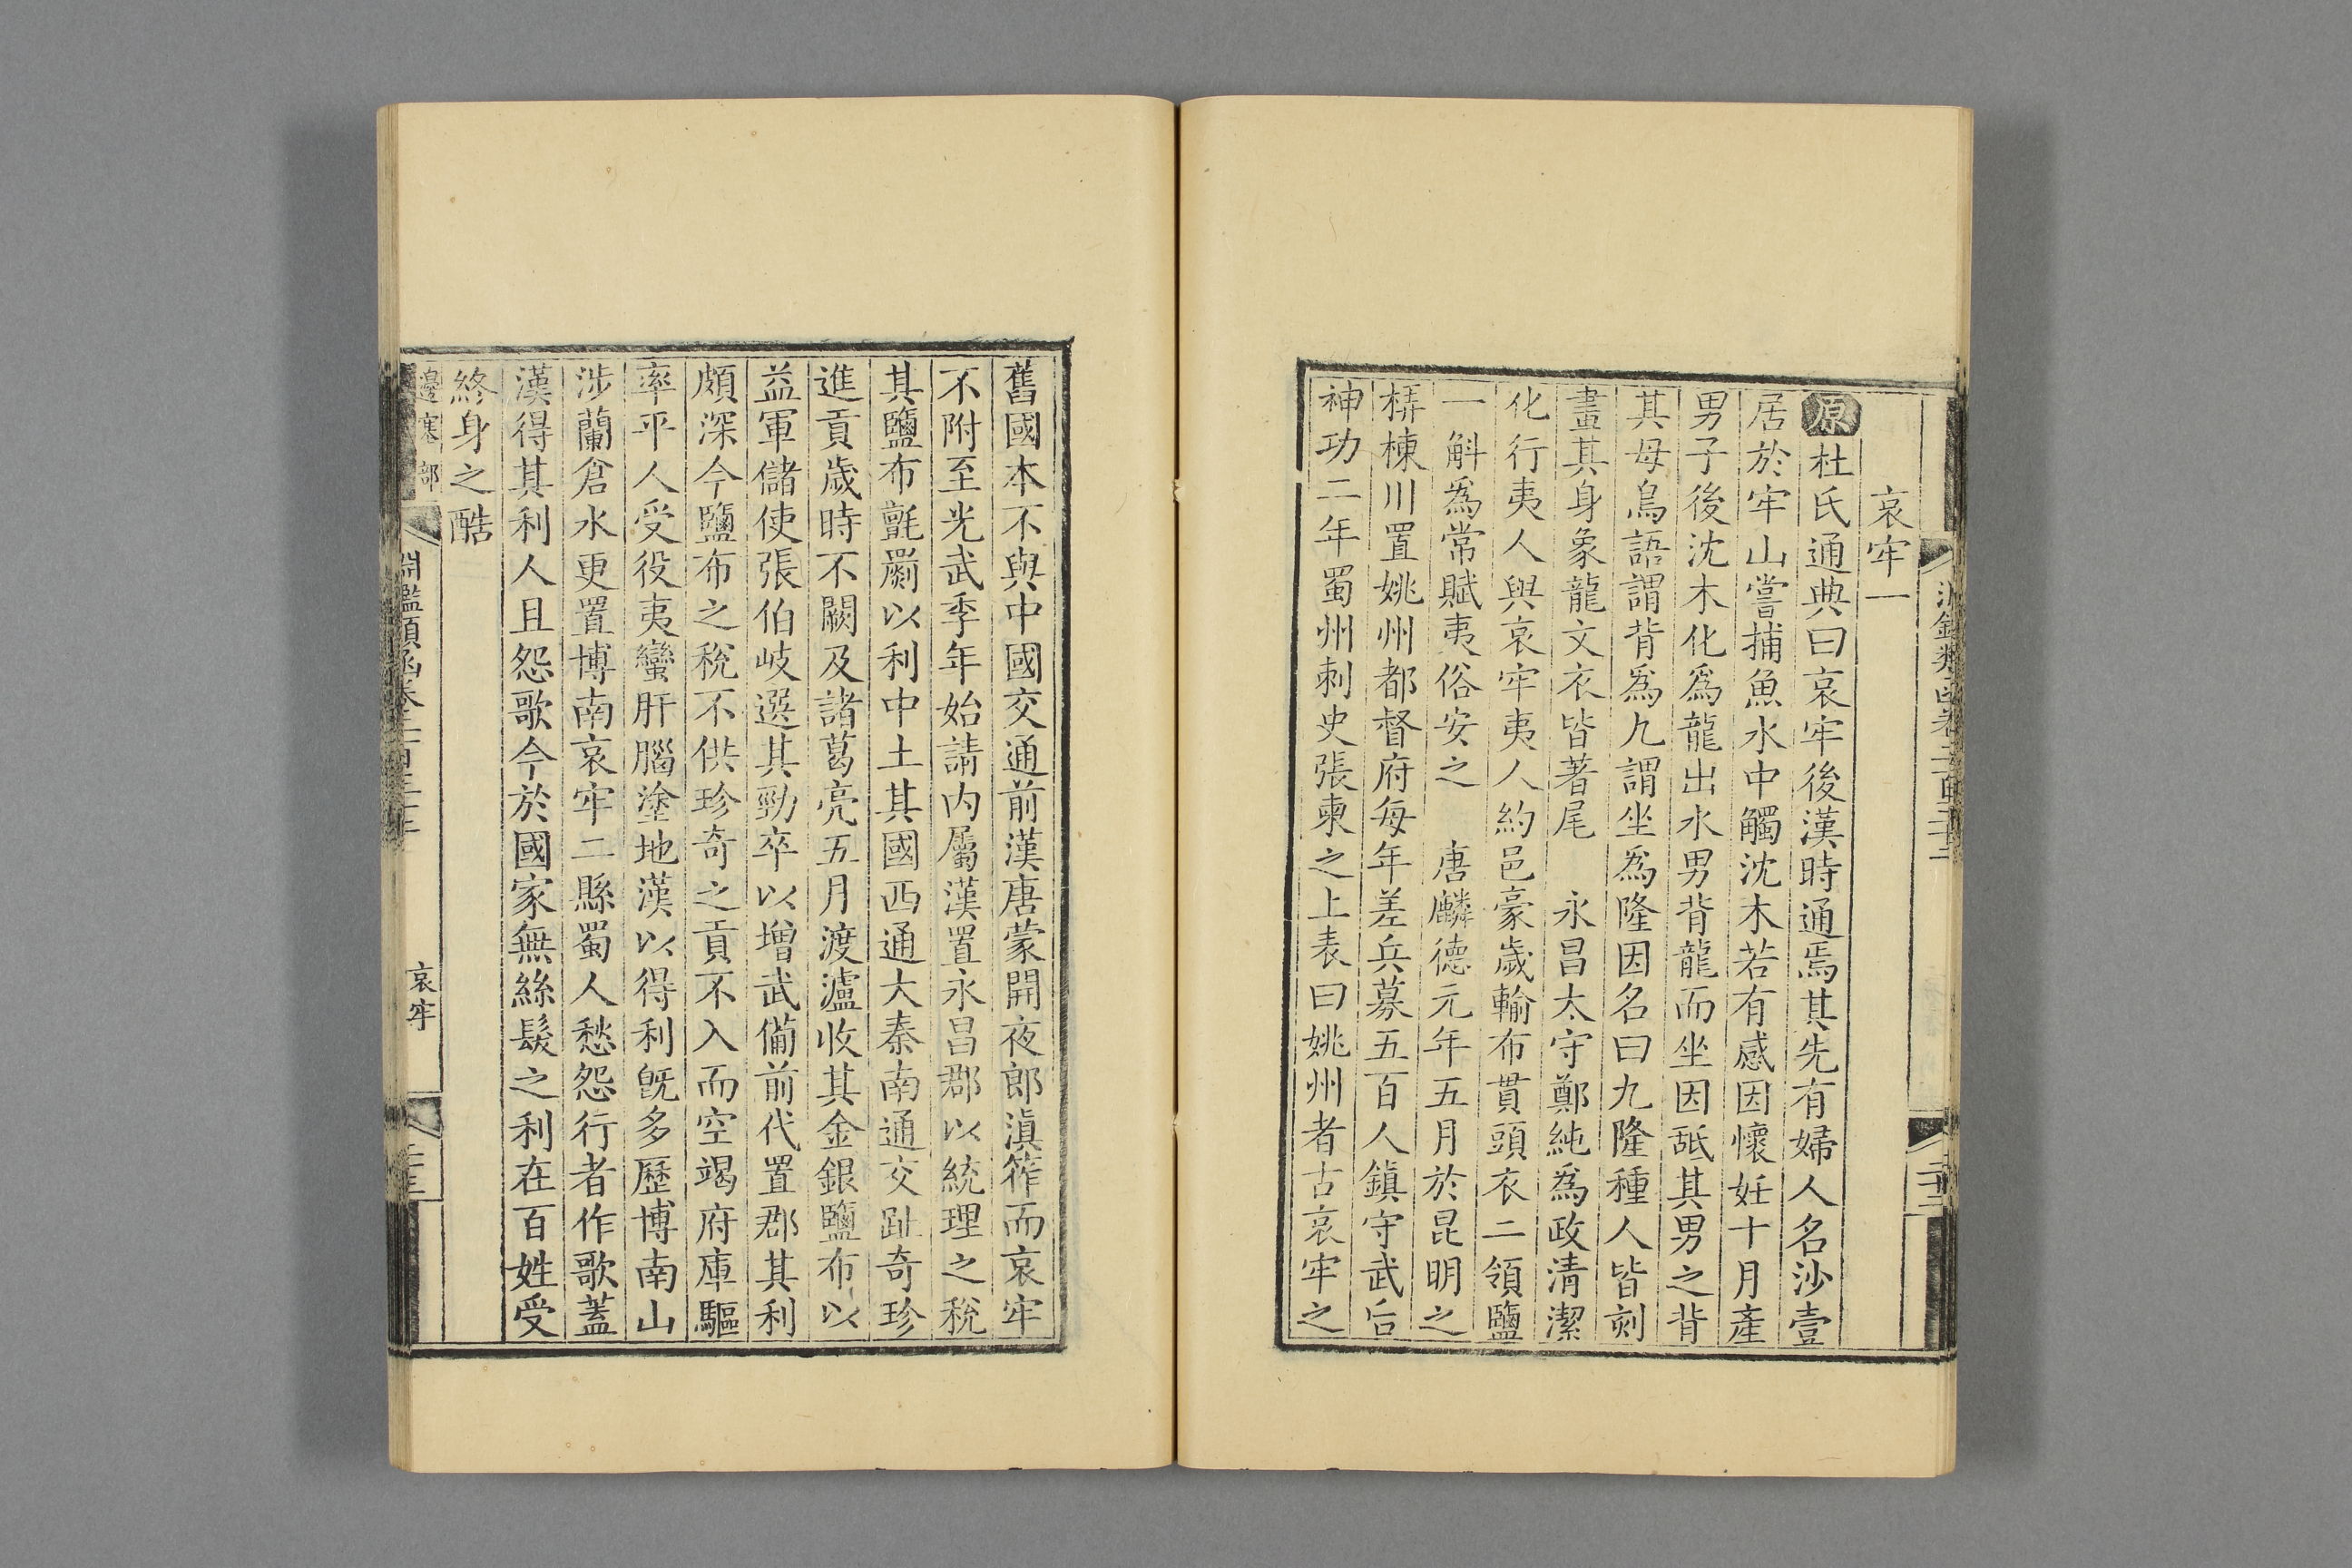 哀牢一
原杜氏通典曰哀牢後漢時通焉其先有婦人名沙壹
居於牢山嘗捕魚水中觸沈木若有感因懷妊十月產
男子後沈木化爲龍出水男背龍而坐因䑛其男之背
其母鳥語謂背爲九謂坐爲隆因名曰九隆種人皆刻
畫其身象龍文衣皆著尾 永昌太守鄭純爲政清潔
化行夷人與哀牢夷人約邑豪歲輸布貫頭衣二領鹽
一斛爲常賦夷俗安之 唐麟德元年五月於昆明之
梇棟川置姚州都督府每年差兵募五百人鎮守武后
神功二年蜀州刺史張柬之上表曰姚州者古哀牢之
舊國本不與中國交通前漢唐蒙開夜郎滇筰而哀牢
不附至光武季年始請內屬漢置永昌郡以統理之稅
其鹽布氈罽以利中土其國西通大秦南通交趾奇珍
進貢歲時不闕及諸葛亮五月渡瀘收其金銀鹽布以
益軍儲使張伯岐選其勁卒以增武備前代置郡其利
頗深今鹽布之稅不供珍奇之貢不入而空竭府庫驅
率平人受役夷蠻肝腦塗地漢以得利旣多歷博南山
涉蘭倉水更置博南哀牢二縣蜀人愁怨行者作歌蓋
漢得其利人且怨歌今於國家無絲髮之利在百姓受
終身之酷
邊塞部
淵鑑類函卷二百三十三
哀牢